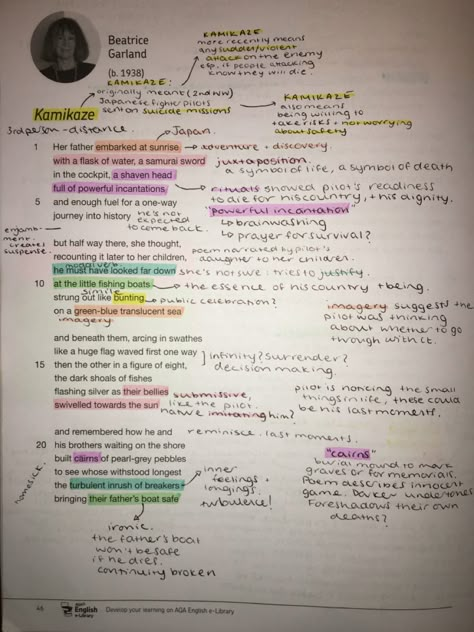 Beatrice
Garland
(b. 1938)
KAMIKAZE
more recently means
any sudden/violent
attack on the enemy
esp. if people attacking
know they will die.
KAMIKAZE:
originally meant (2nd WW)
Japanese fighter pilots
sent on suicide missions
KAMIKAZE
also means
being willing to
take risks + not worrying
about safety
Kamikaze
3rd person - distance.
Japan.
1 Her father embarked at sunrise
adventure + discovery.
with a flask of water, a samurai sword
juxtaposition.
a symbol of life, a symbol of death
in the cockpit, a shaven head
full of powerful incantations
rituals showed pilot's readiness
to die for his country, + his dignity.
5 and enough fuel for a one-way
"powerful incantation"
journey into history
he's not
expected
to come back.
brainwashing
prayer for survival?
enjamb-
ment
creates
suspense.
but half way there, she thought,
poem narrated by pilot's
daughter to her children.
recounting it later to her children,
he must have looked far down
she's not sure: tries to justify.
10 at the little fishing boats
the essence of his country + being.
simile
strung out like bunting
public celebration?
on a green-blue translucent sea
imagery
imagery suggests the
pilot was thinking
about whether to go
through with it.
and beneath them, arcing in swathes
like a huge flag waved first one way
infinity? surrender?
15 then the other in a figure of eight,
decision making.
the dark shoals of fishes
flashing silver as their bellies
submissive,
like the pilot.
swivelled towards the sun
nature imitating him?
pilot is noticing the small
things in life, these could
be his last moments.
and remembered how he and
reminisce. last moments.
20 his brothers waiting on the shore
built cairns of pearl-grey pebbles
to see whose withstood longest
the turbulent inrush of breakers
inner
feelings +
longings.
turbulence!
bringing their father's boat safe
homesick.
"cairns"
burial mound to mark
graves or for memorials.
Poem describes innocent
game. Darker undertones
Foreshadows their own
deaths?
ironic.
the father's boat
won't be safe
if he dies.
continuity broken
46
English
e-Library
Develop your learning on AQA English e-Library